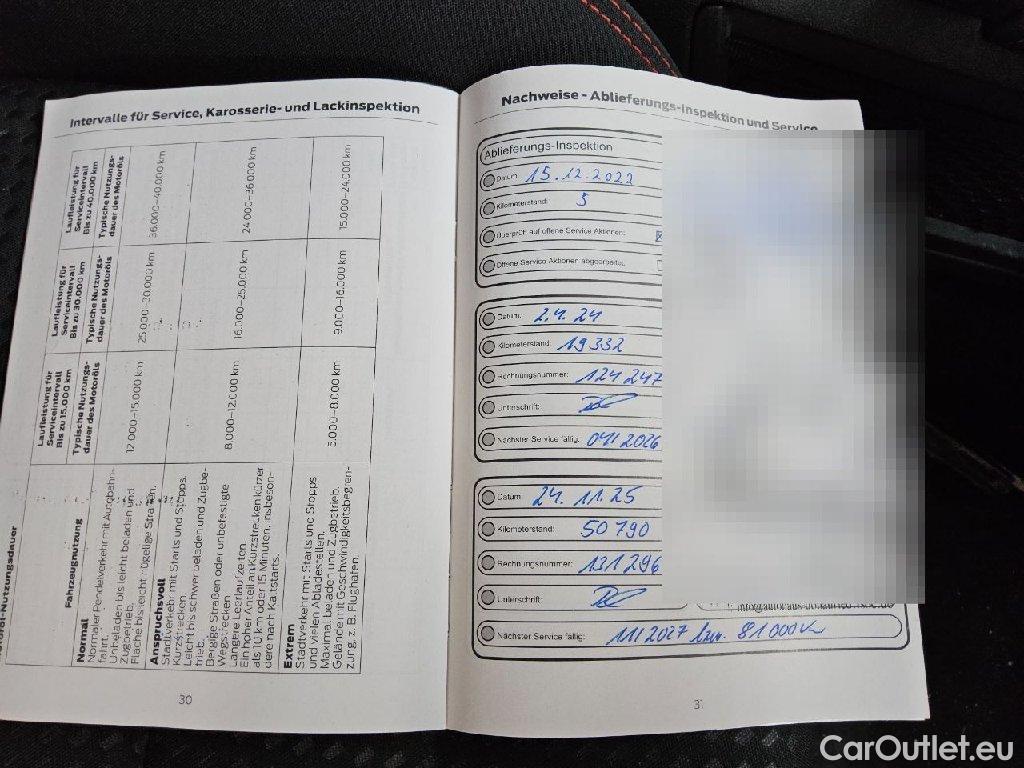 Intervalle für Service, Karosserie- und Lackinspektion
Fahrzeugnutzung
Laufleistung für
Serviceintervall
Bis zu 15.000 km
Typische Nutzungs-
dauer des Motoröls
Laufleistung für
Serviceintervall
Bis zu 30.000 km
Typische Nutzungs-
dauer des Motoröls
Laufleistung für
Serviceintervall
Bis zu 40.000 km
Typische Nutzungs-
dauer des Motoröls
Normal
Normaler Pendelverkehr mit Autobahn-
fahrt.
Unbeladen bis leicht beladen und
Zugbetrieb.
Flache bis leicht hügelige Straßen.
12.000–15.000 km
25.000–30.000 km
36.000–40.000 km
Anspruchsvoll
Stadtverkehr mit Starts und Stopps.
Kurzstrecken
Leicht bis schwer beladen und Zugbe-
trieb.
Bergige Straßen oder unbefestigte
Wegstrecken
Längere Leerlaufzeiten
Ein hoher Anteil an Kurzstrecken kürzer
als 10 km oder 15 Minuten, insbeson-
dere nach Kaltstarts.
8.000–12.000 km
16.000–25.000 km
24.000–36.000 km
Extrem
Stadtverkehr mit Starts und Stopps
und vielen Abladestellen.
Maximal beladen und Zugbetrieb.
Gelände mit Geschwindigkeitsbegren-
zung, z. B. Flughäfen.
5.000–8.000 km
9.000–16.000 km
15.000–24.000 km
30
Nachweise - Ablieferungs-Inspektion und Service
Ablieferungs-Inspektion
Datum: 15.12.2022
Kilometerstand: 5
Überprüft auf offene Service Aktionen:
Offene Service Aktionen abgearbeitet:
Datum: 2.4.24
Kilometerstand: 19332
Rechnungsnummer: 124 247
Unterschrift:
Nächster Service fällig: 04/2026
Datum: 24.11.25
Kilometerstand: 50790
Rechnungsnummer: 131296
Unterschrift:
Nächster Service fällig: 11/2027 bzw. 81000K
31
CarOutlet.eu